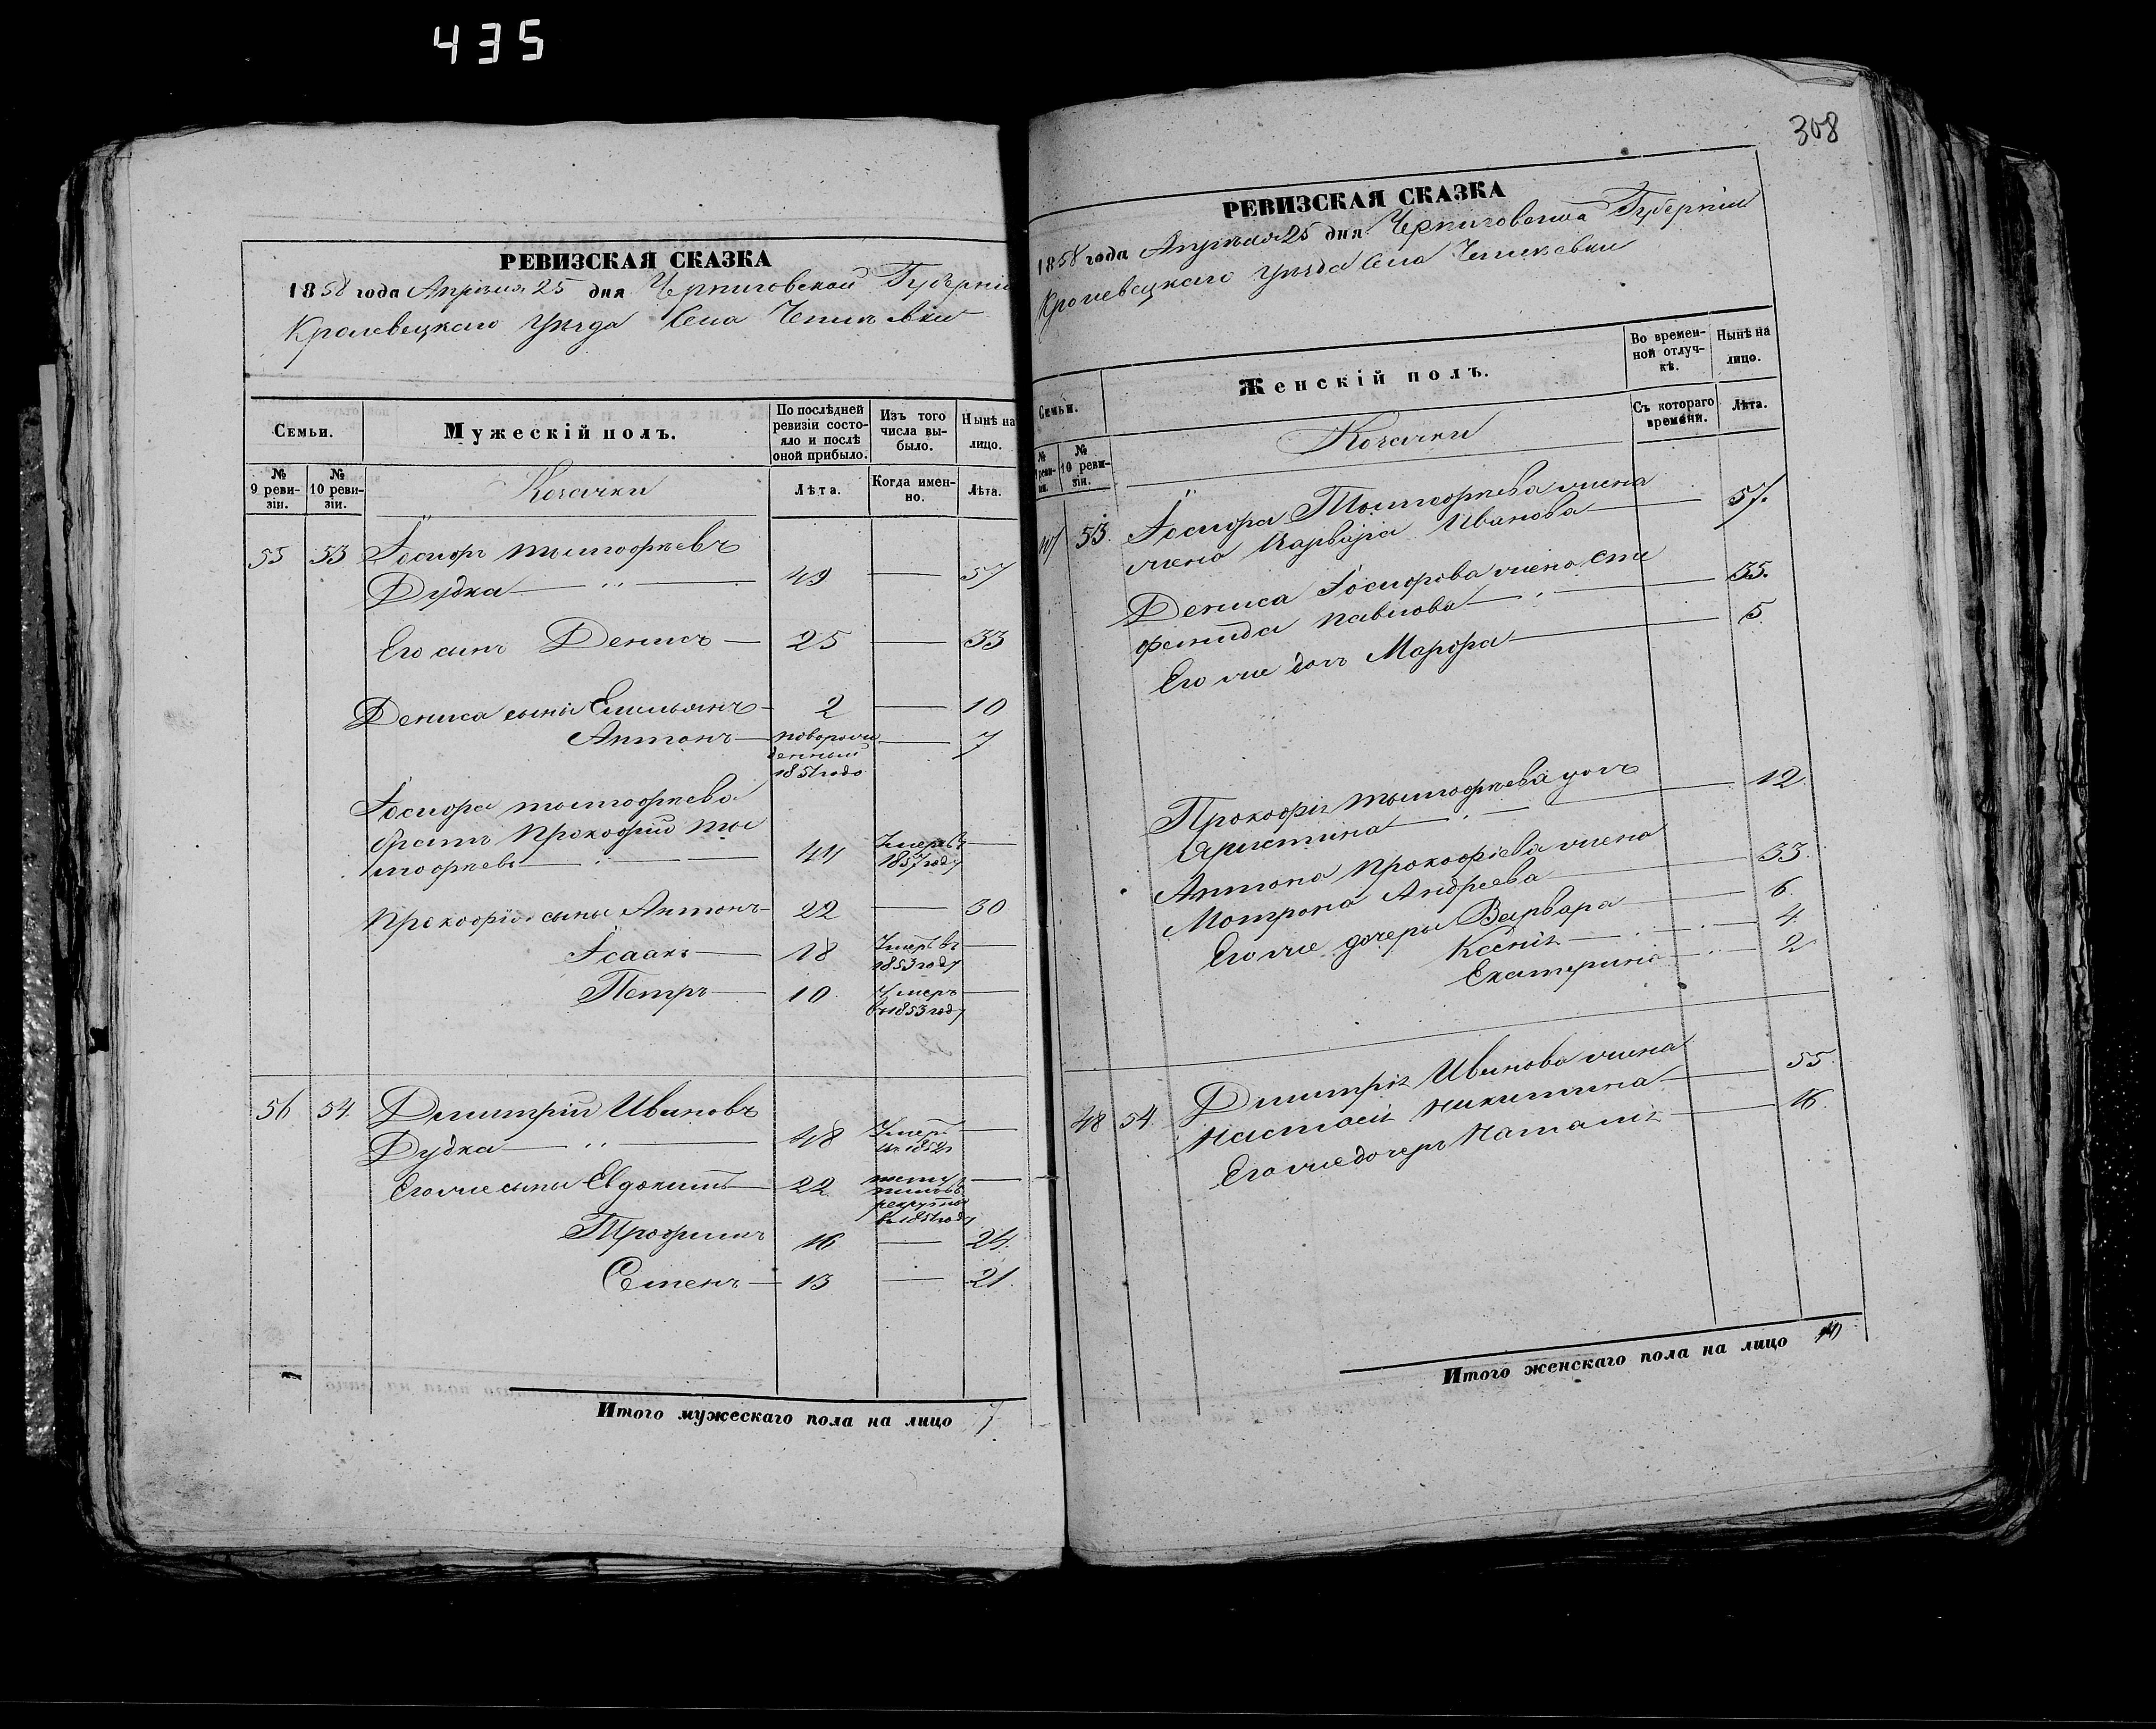 435
РЕВИЗСКАЯ СКАЗКА
1858 года Апреля 25 дня Черниговской Губерніи
Кролевецкаго уезда Села
Семьи.
Мужескій полъ.
По послѣдней ревизіи состояло и послѣ оной прибыло.
Изъ того числа выбыло.
Нынѣ на лицо.
№ 9 ревизіи.
№ 10 ревизіи.
Лѣта.
Когда именно.
Лѣта.
55 53 Іосифъ Тымофѣевъ
Дудка 49 — 57
Его сынъ Денисъ — 25 — 33
Дениса сыны Емельянъ — 2 — 10
Антонъ — новорожденный 1851 года — 7
Іосифа Тымофеева
братъ Прокофій Тымофеевъ 44 Умеръ въ 1857 году —
Прокофія сыны Антонъ 22 — 30
Ісаакъ — 18 Умеръ въ 1853 году —
Петръ — 10 Умеръ въ 1853 году —
56 54. Дмитрій Ивановъ
Дудка 48 Умеръ —
Его же сыны Евдокимъ 22 въ 1851 году —
Трофимъ 16 — 24.
Семенъ — 13 — 21.
Итого мужескаго пола на лицо 7
308
РЕВИЗСКАЯ СКАЗКА
1858 года Апреля 25 дня Черниговской Губерніи
Кролевецкаго уезда Села
Семьи.
Женскій полъ.
Во временной отлучкѣ.
Нынѣ на лицо.
№ 10 ревизіи.
Съ котораго времени.
Лѣта.
53. Іосифа Тымофѣева жена
Иванова — 57.
Дениса Іосифова жена Сте
фанида Павлова — 35.
Его же дочь Марфа — 5
Прокофія Тымофѣева дочь
Христина — 12.
Антона Прокофіева жена
Мотрона Андреева — 33.
Его же дочеры Варвара — 6.
Ксенія — 4
Екатерина — 2
48 54. Дмитрія Иванова жена
Настасія Никитина — 55.
Его же дочерь Наталія — 16.
Итого женскаго пола на лицо 10